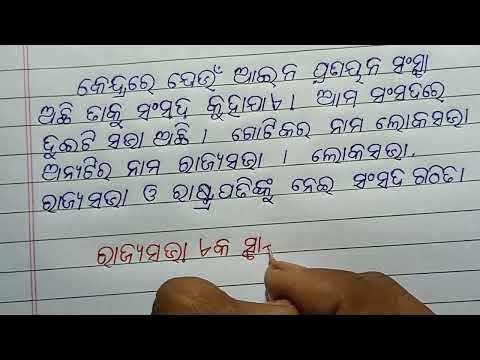 କେନ୍ଦ୍ରରେ ଯେଉଁ ଆଇନ ପ୍ରଣୟନ ସଂସ୍ଥା
ଅଛି ତାକୁ ସଂସଦ କୁହାଯାଏ । ଆମ ସଂସଦରେ
ଦୁଇଟି ସଭା ଅଛି । ଗୋଟିକର ନାମ ଲୋକସଭା
ଅନ୍ୟଟିର ନାମ ରାଜ୍ୟସଭା । ଲୋକସଭା,
ରାଜ୍ୟସଭା ଓ ରାଷ୍ଟ୍ରପତିଙ୍କୁ ନେଇ ସଂସଦ ଗଠିତ।
ରାଜ୍ୟସଭା ଏକ ସ୍ଥା